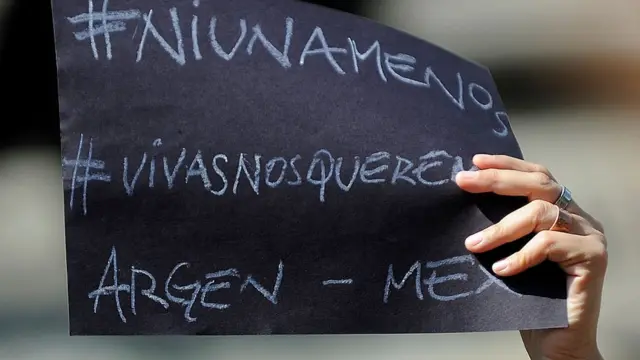 #NIUNAMENOS
#VIVASNOSQUEREM
ARGEN - MEX